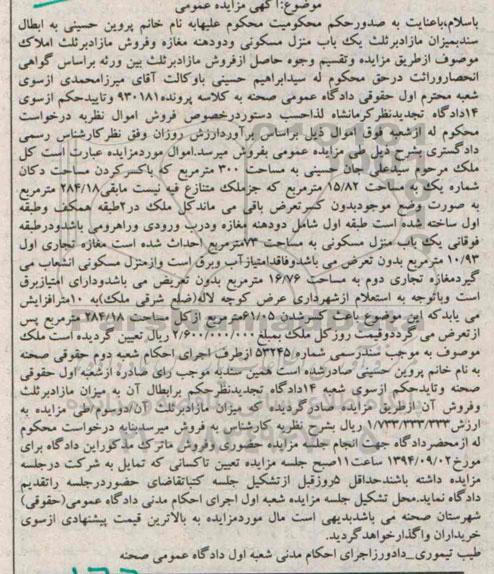 موضوع:آگهی مزایده عمومی
باسلام،باعنایت به صدورحکم محکومیت محکوم علیهابه نام خانم پروین حسینی به ابطال
سندبمیزان مازادبرثلث یک باب منزل مسکونی ودودهنه مغازه وفروش مازادبرثلث املاک
موصوف ازطریق مزایده وتقسیم وجوه حاصل ازفروش مازادبرثلث بین ورثه براساس گواهی
انحصاروراثت درحق محکوم له سیدابراهیم حسینی باوکالت آقای میرزامحمدی ازسوی
شعبه محترم اول حقوقی دادگاه عمومی صحنه به کلاسه پرونده۹۳۰۱۸۱ وتاییدحکم ازسوی
۱۴دادگاه تجدیدنظرکرمانشاه لذاحسب دستوردرخصوص فروش اموال نظریه درخواست
محکوم له ازشعبه فوق اموال ذیل براساس برآوردارزش روزان وفق نظرکارشناس رسمی
دادگستری بشرح ذیل طی مزایده عمومی بفروش میرسد.اموال موردمزایده عبارت است کل
ملک مرحوم سیدعلی جان حسینی به مساحت ۳۰۰ مترمربع که باکسرکردن مساحت دکان
شماره یک به مساحت ۱۵/۸۲ مترمربع که جزملک متنازع فیه نیست مابقی۲۸۴/۱۸ مترمربع
به صورت وضع موجودبدون کسرتعرض باقی می ماندکل ملک در۲طبقه همکف وطبقه
اول ساخته شده است طبقه اول شامل دودهنه مغازه ودرب ورودی وراهرومی باشدودرطبقه
فوقانی یک باب منزل مسکونی به مساحت ۷۳مترمربع احداث شده است مغازه تجاری اول
۱۰/۹۳ مترمربع بدون تعرض می باشدوفاقدامتیازآب وبرق است وازمنزل مسکونی انشعاب می
گیردمغازه تجاری دوم به مساحت ۱۶/۷۶ مترمربع بدون تعریض می باشدودارای امتیازبرق
است وباتوجه به استعلام ازشهرداری عرض کوچه لاله(ضلع شرقی ملک)به ۱۰مترافزایش
می یابدکه این موضوع باعث کسرشدن ۶۱/۰۵مترمربع ازکل مساحت ۲۸۴/۱۸ مترمربع پس
ازتعرض می گرددوقیمت روزکل ملک بمبلغ۲/۶۰۰/۰۰۰/۰۰۰ ریال تعیین گردیده است ملک
موصوف به موجب سندرسمی شماره ۵۳۲۴۵ ازطرف اجرای احکام شعبه دوم حقوقی صحنه
به نام خانم پروین حسینی صادرشده است همین سندبه موجب رای صادره ازشعبه اول حقوقی
صحنه وتایدحکم ازسوی شعبه ۱۴دادگاه تجدیدنظرحکم برابطال آن به میزان مازادبرثلث
وفروش آن ازطریق مزایده صادرگردیده که میزان مازادبرثلث آن/دوسوم/در مزایده به
ارزش۱/۷۳۳/۳۳۳/۳۳۳ ریال بشرح نظریه کارشناس به فروش میرسدبنابه درخواست محکوم
له ازمحضردادگاه جهت انجام جلسه مزایده حضوری وفروش ماترک مذکوراین دادگاه برای
مورخ ۱۳۹۴/۰۹/۰۲ ساعت ۱۱صبح جلسه مزایده تعیین تاکسانی که تمایل به شرکت درجلسه
مزایده داشته باشندحداقل ۵روزقبل ازتشکیل جلسه کتباتقاضای حضوردرجلسه راتقدیم
دادگاه نماید.محل تشکیل جلسه مزایده شعبه اول اجرای احکام مدنی دادگاه عمومی(حقوقی)
شهرستان صحنه می باشدبدیهی است مال موردمزایده به بالاترین قیمت پیشنهادی ازسوی
خریداران واگذارخواهدگردید.
طیب تیموری_دادورزاجرای احکام مدنی شعبه اول دادگاه عمومی صحنه